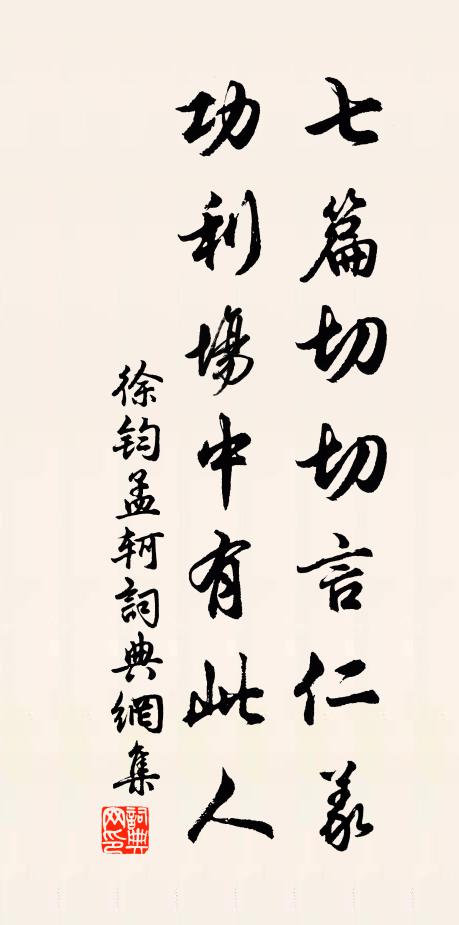 七篇切切言仁義
功利場中有此人
徐鈞孟軻詞典網集
詞典網印